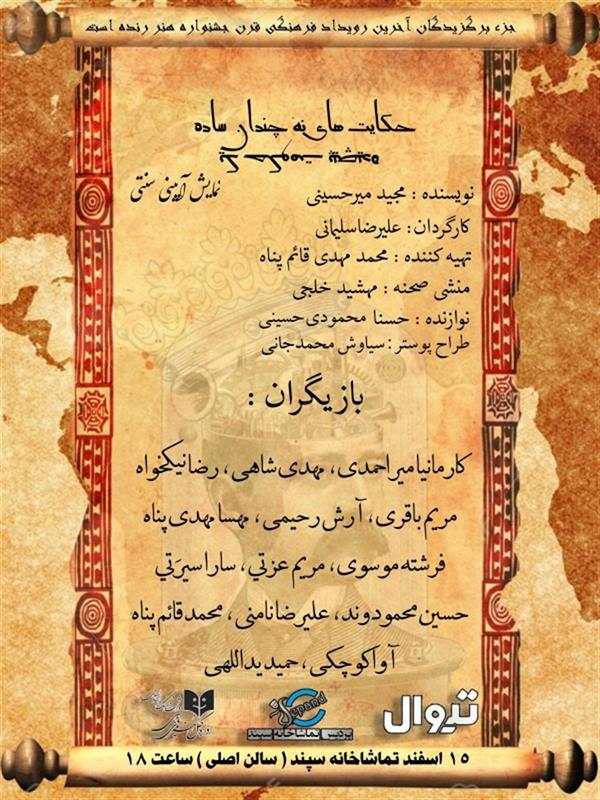 جزء برگزیدگان آخرین رویداد فرهنگی قرن جشنواره هنر زنده است
حکایت های نه چندان ساده
نمایش آیینی سنتی
نویسنده : مجید میرحسینی
کارگردان : علیرضا سلیمانی
تهیه کننده : محمد مهدی قائم پناه
منشی صحنه : مهشید خلجی
نوازنده : حسنا محمودی حسینی
طراح پوستر : سیاوش محمدجانی
بازیگران :
کارمانیا میراحمدی، مهدی شاهی، رضا نیکخواه
مریم باقری، آرش رحیمی، مهسا مهدی پناه
فرشته موسوی، مریم عزتي، سارا سیرَتي
حسین محمودوند، علیرضا نامنی، محمد قائم پناه
آوا کوچکی، حمید یداللهی
تیوال
Sepand
پردیس تماشاخانه سپند
۱۵ اسفند تماشاخانه سپند ( سالن اصلی ) ساعت ۱۸